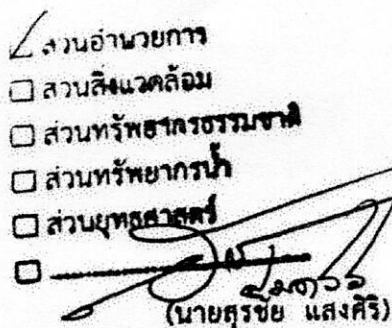 ส่วนอำนวยการ
ส่วนสิ่งแวดล้อม
ส่วนทรัพยากรธรรมชาติ
ส่วนทรัพยากรน้ำ
ส่วนยุทธศาสตร์
(นายสุรชัย แสงศิริ)